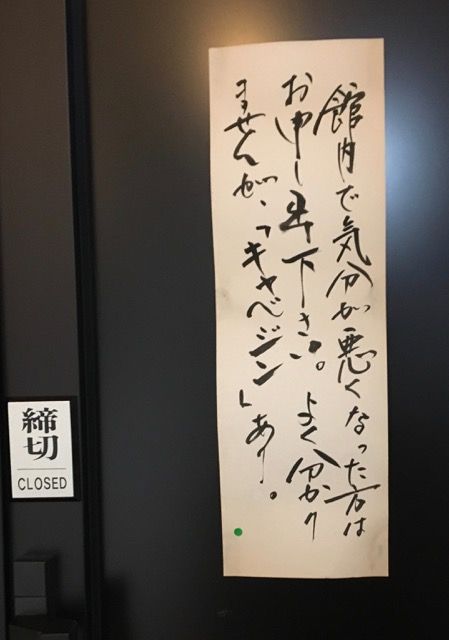 館内で気分が悪くなった方は
お申し出下さい。よく分かり
ませんが、「キャベジン」あり。
締切
CLOSED